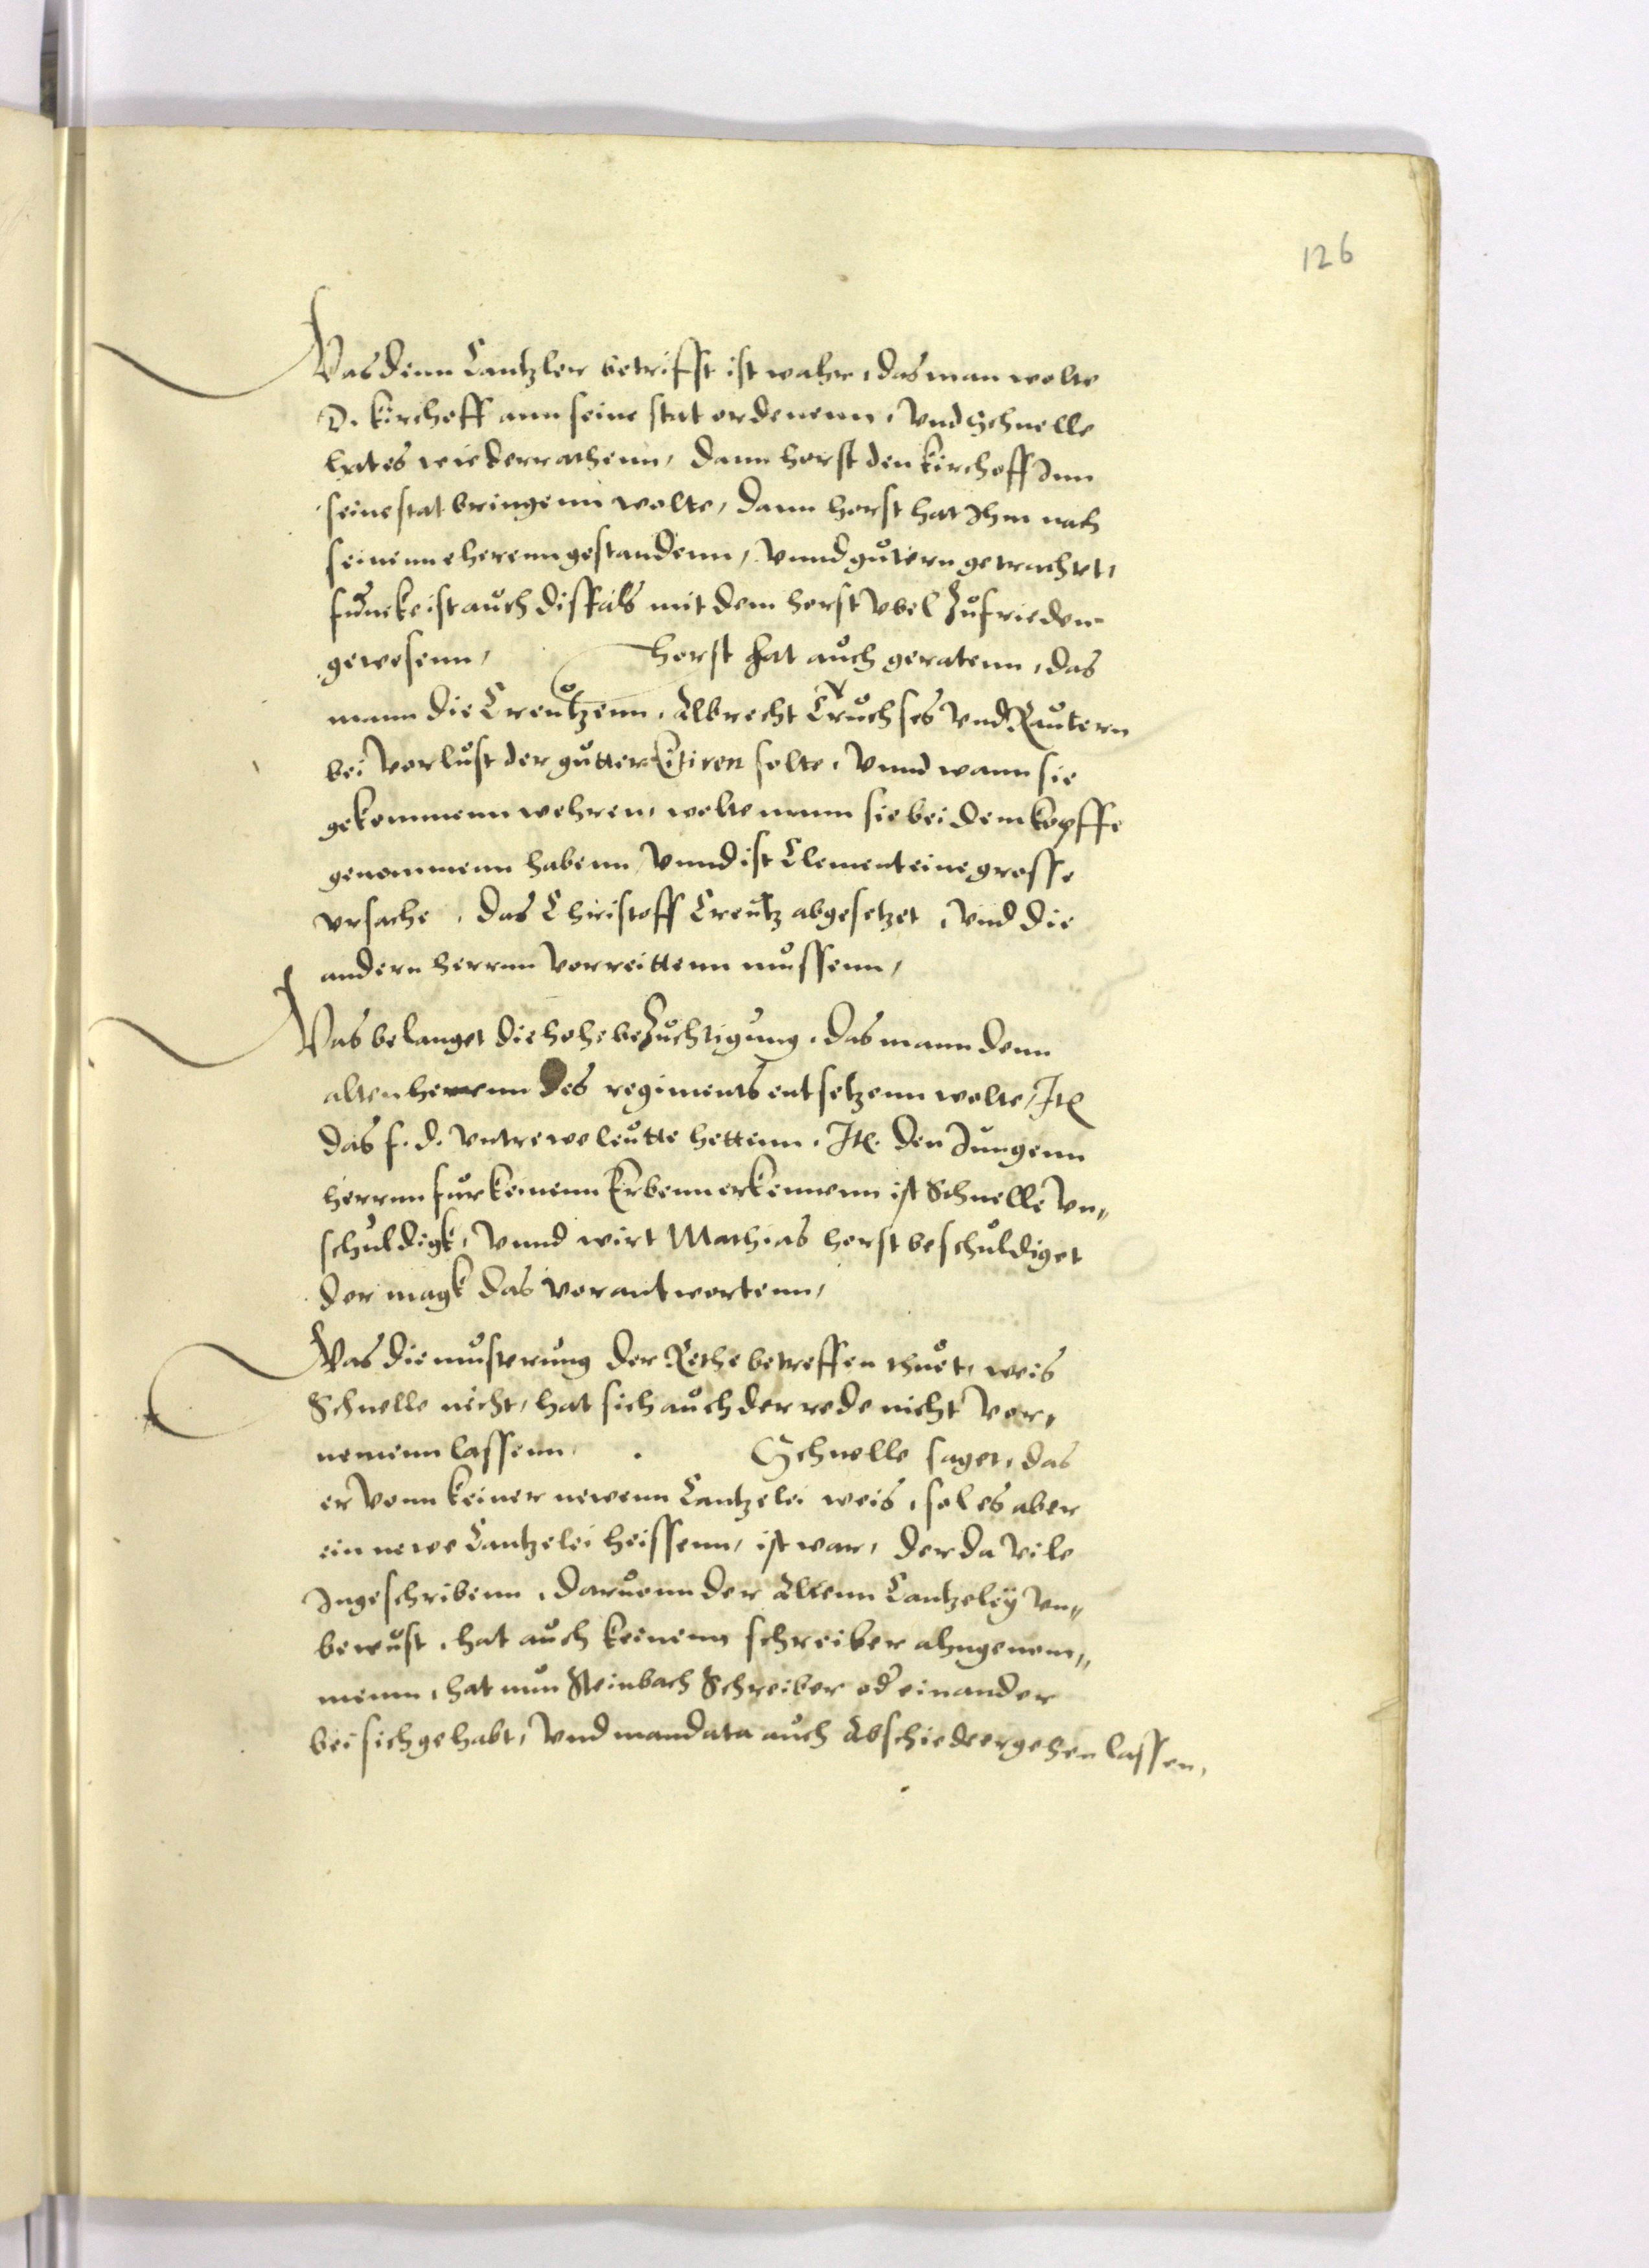 126
Was denn Cantzler betrifft ist wahr, das man wolte
D. Kirchoff ann seine stat ordenenn, Vnd Schnelle
hat es wiederrathenn, dann horst den Kirchoff Inn
seine stat bringenn wolte, dann horst hat Ihm nach
seinenn eherenn gestandenn, Vnnd gütern getrachtet,
funcke ist auch disfals mit dem horst Vbel Zufrieden
gewesenn, horst hat auch geratenn, das
mann die Creutzenn, Albrecht Truchses Vnd Rautern
bei Vorlust der gutter Citiren solte, Vnnd wann sie
gekommenn wehren, wolte mann sie bei dem kopffe
genommenn habenn, Vnnd ist Clement eine grosse
vrsache, das Christoff Creutz abgesetzet, Vnd die
andern herrnn Vorreittenn mussenn,
Was belanget die hohe beZuchtigung, das mann denn
alten herrnn des regiments entsetzenn wolte, It(em)
das f. d. Vntrewe leutte hettenn, It(em) den Jungenn
herrnn fur keinenn Erbenn erkennenn ist Schnelle Vn„
schuldigk, Vnnd wirt Mathias horst beschuldiget
der magk das vorantwortenn,
Was die musterung der Rethe betreffen thuet, weis
Schnelle nicht, hat sich auch der rede nicht Vor,
nemenn lassenn, Schnelle saget, das
er Vonn keiner newenn Cantzelei weis, sol es aber
ein newe Cantzelei heissenn, ist war, der da Vile
Ingeschribenn, daruonn der Altenn Cantzeley Vn„
bewust, hat auch keinenn schreiber ahngenom„
menn, hat nun Steinbach Schreiber od einander
bei sich gehabt, Vnd mandata auch Abschiede ergehen lassen,